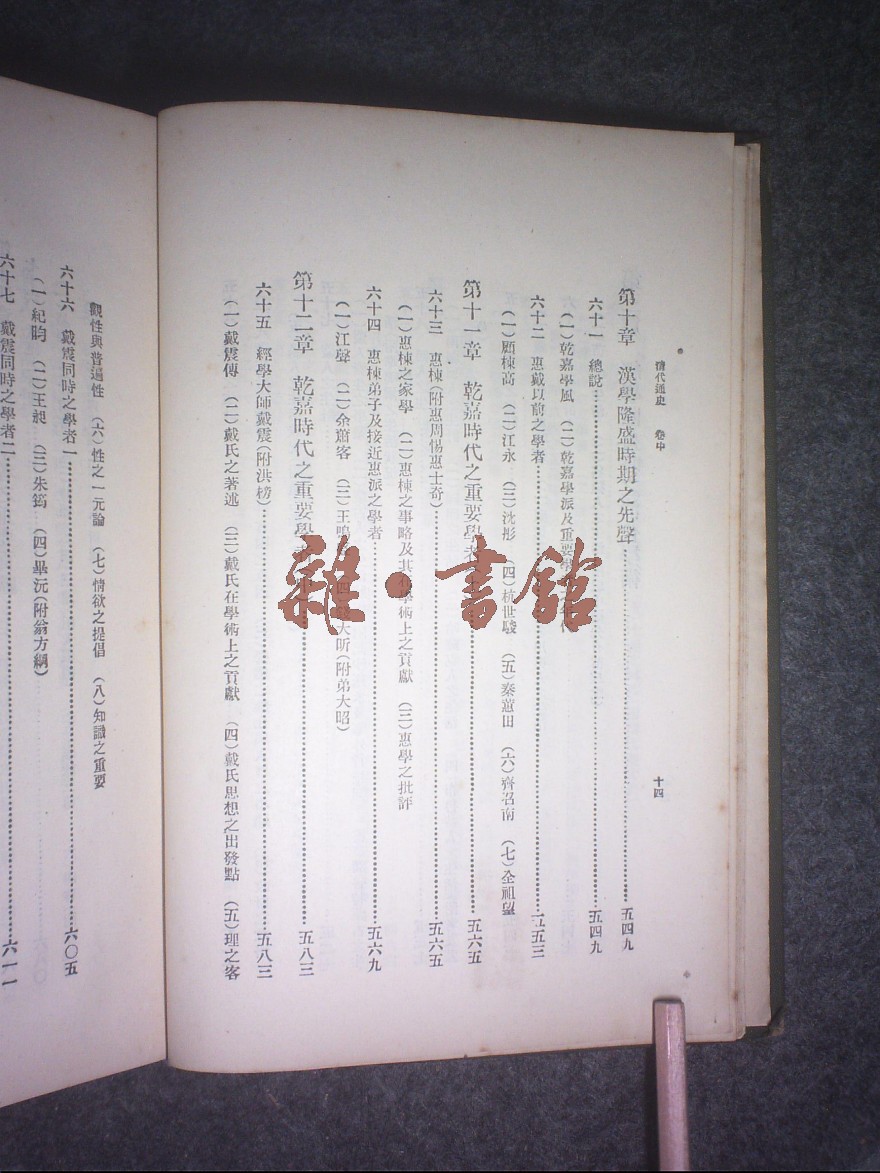 清代通史 卷中
十四
第十章 漢學隆盛時期之先聲 五四九
六十一 總說 五四九
(一)乾嘉學風 (二)乾嘉學派及重要學
六十二 惠戴以前之學者 五五三
(一)顧棟高 (二)江永 (三)沈彤 (四)杭世駿 (五)秦蕙田 (六)齊召南 (七)全祖望
第十一章 乾嘉時代之重要學 五六五
六十三 惠棟(附惠周惕惠士奇) 五六五
(一)惠棟之家學 (二)惠棟之事略及其在學術上之貢獻 (三)惠學之批評
六十四 惠棟弟子及接近惠派之學者 五六九
(一)江聲 (二)余蕭客 (三)王鳴 大昕(附弟大昭)
第十二章 乾嘉時代之重要學 五八三
六十五 經學大師戴震(附洪榜) 五八三
(一)戴震傳 (二)戴氏之著述 (三)戴氏在學術上之貢獻 (四)戴氏思想之出發點 (五)理之客
觀性與普遍性 (六)性之一元論 (七)情欲之提倡 (八)知識之重要
六十六 戴震同時之學者一 六〇五
(一)紀昀 (二)王昶 (三)朱筠 (四)畢沅(附翁方綱)
六十七 戴震同時之學者二 六一一
雜·書館